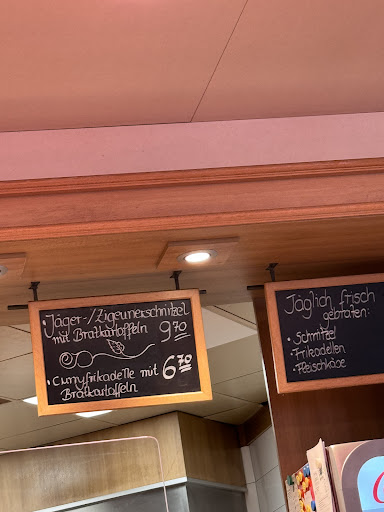 Jäger-/Zigeunerschnitzel
mit Bratkartoffeln 9 70
• Curryfrikadelle mit 6 70
Bratkartoffeln
Täglich frisch
gebraten:
• Schnitzel
• Frikadellen
• Fleischkäse